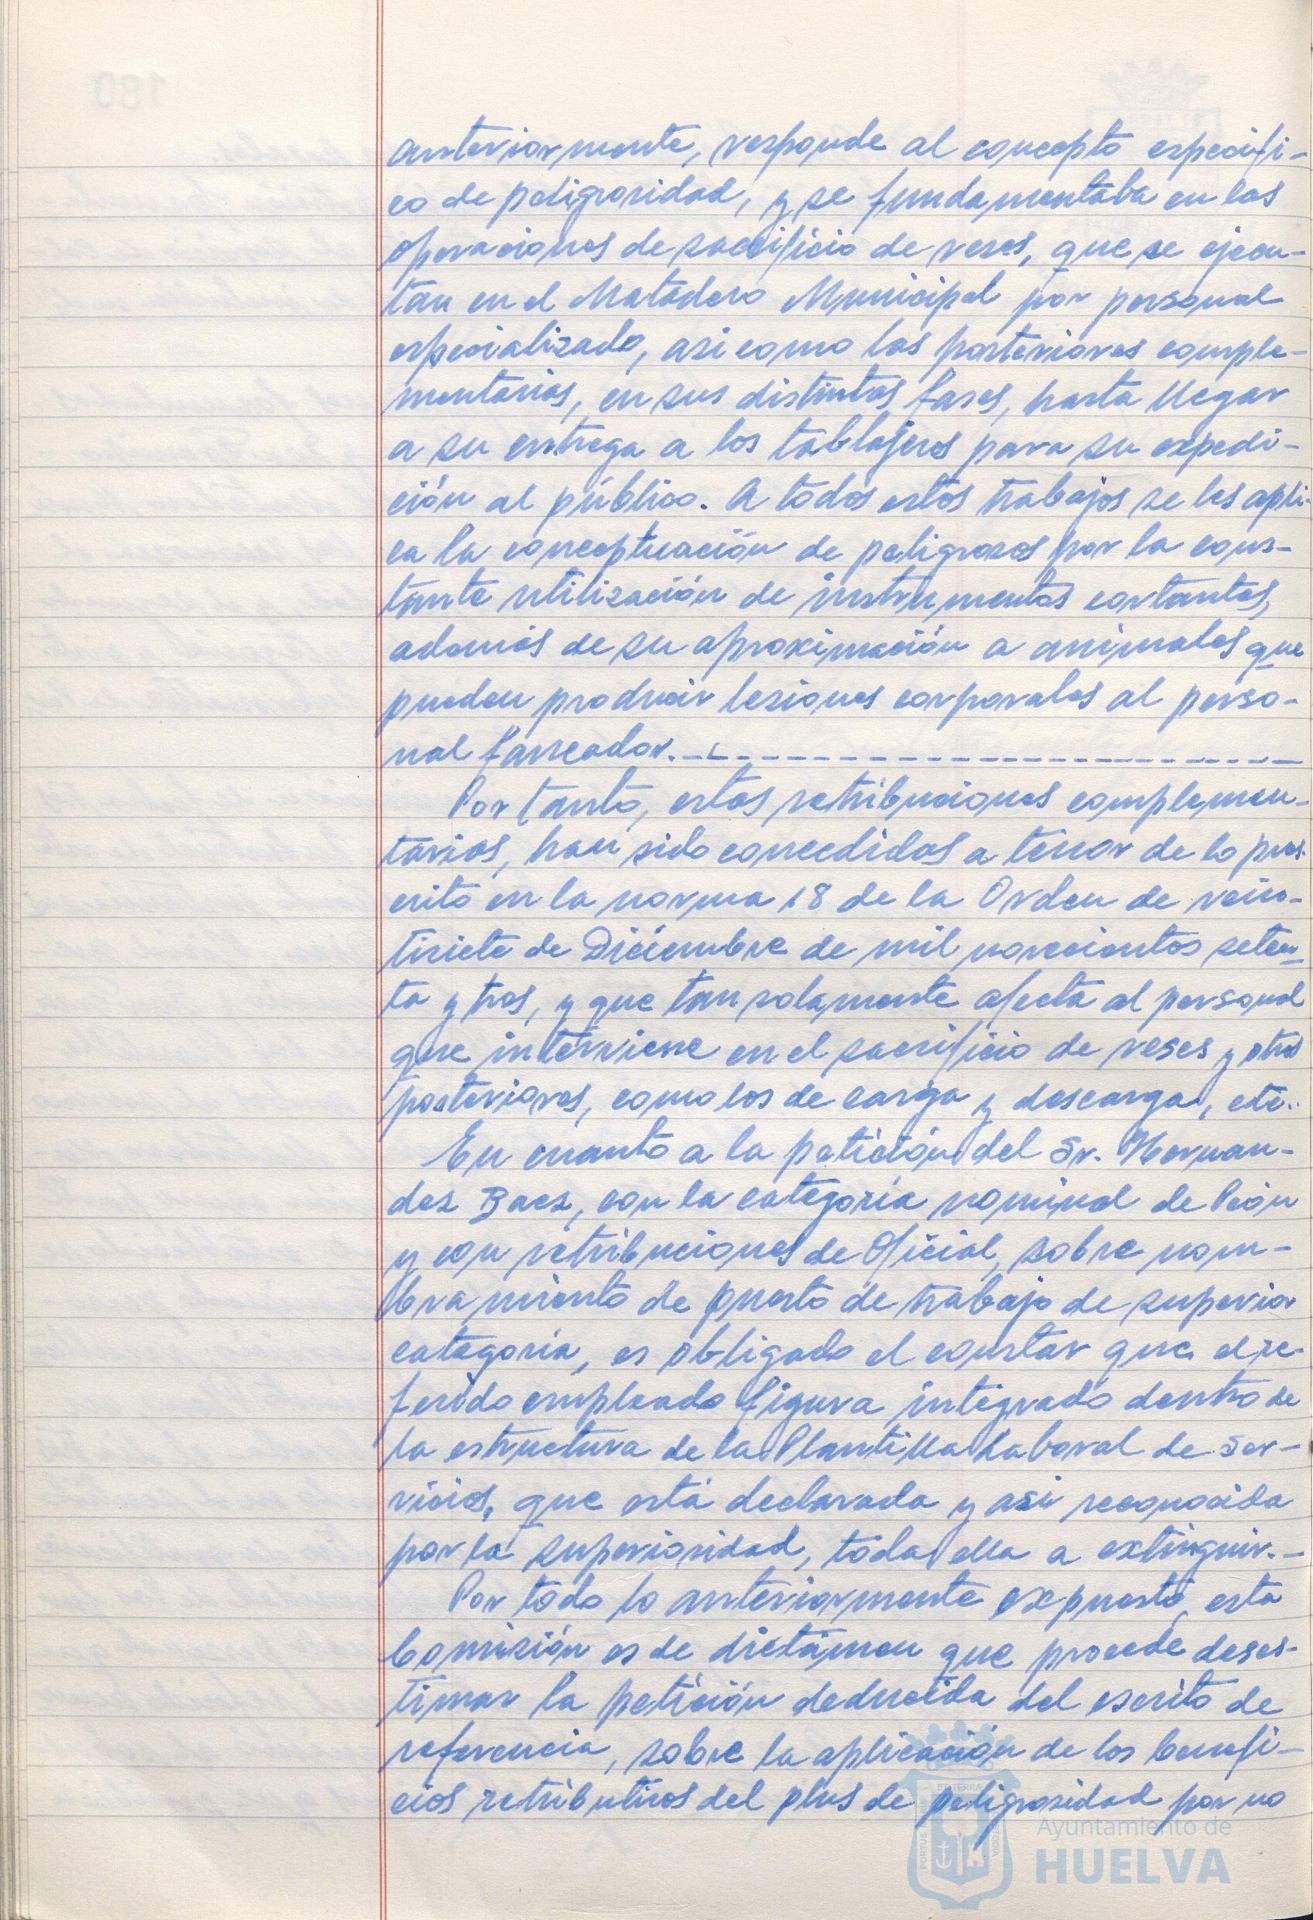 anteriormente, responde al concepto específi-
co de peligrosidad, y se fundamentaba en las
operaciones de sacrificio de reses, que se ejecu-
tan en el Matadero Municipal por personal
especializado, asi como las posteriores comple-
mentarias, en sus distintas fases, hasta llegar
a su entrega a los tablajeros para su expedi-
ción al público. A todos estos trabajos se les apli-
ca la conceptuación de peligrosos por la cons-
tante utilización de instrumentos cortantes,
además de su aproximación a animales que
pueden producir lesiones corporales al perso-
nal faneador.
Por tanto, estas retribuciones complemen-
tarias, han sido concedidas a tenor de lo pres-
crito en la norma 18 de la Orden de vein-
tisiete de Diciembre de mil novecientos seten-
ta y tres, y que tan solamente afecta al personal
que interviene en el sacrificio de reses y otros
posteriores, como los de carga y descarga, etc.
En cuanto a la petición del Sr. Hernan-
dez Baez, con la categoría nominal de Peón
y con retribuciones de Oficial, sobre nom-
bramiento de puesto de trabajo de superior
categoría, es obligado el constar que el re-
ferido empleado figura integrado dentro de
la estructura de la Plantilla Laboral de Ser-
vicios, que está declarada y asi reconocida
por la superioridad, toda ella a extinguir.-
Por todo lo anteriormente expuesto, esta
Comisión es de dictámen que procede deses-
timar la petición deducida del escrito de
referencia, sobre la aplicación de los benefi-
cios retributivos del plus de peligrosidad por no
Ayuntamiento de
HUELVA